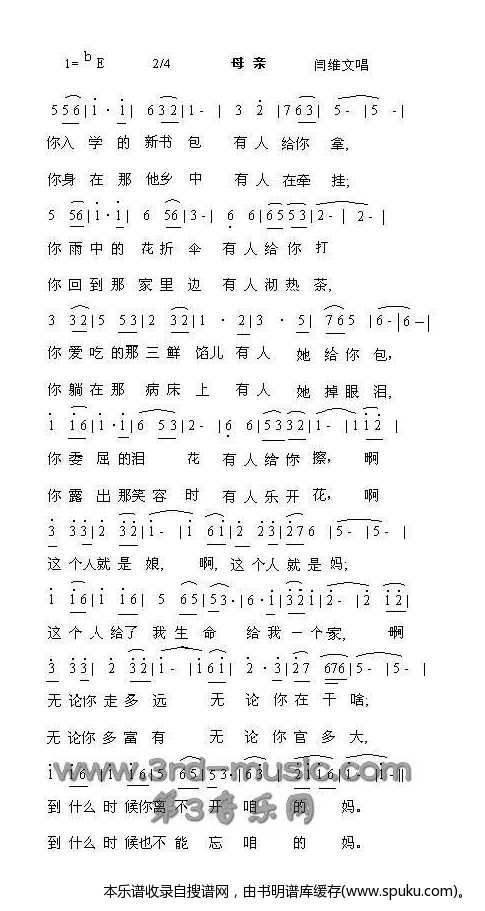 1= ♭E 2/4 母亲 闫维文唱
5 56|1 · 1| 6 32|1 - | 3 2 |7 63| 5 - |5 - |
你入 学 的 新书 包 有 人 给你 拿,
你身 在 那 他乡 中 有 人 在牵 挂;
5 56|1 · 1| 6 56|3 - | 6 6|65 53|2 - | 2 - |
你 雨 中 的 花 折 伞 有 人 给 你 打
你 回 到 那 家 里 边 有 人 沏 热 茶,
3 32|5 53|2 32|1 · 2|3 · 5| 765 |6 - |6 — |
你 爱 吃 的 那 三 鲜 馅儿 有 人 她 给 你 包,
你 躺 在 那 病 床 上 有 人 她 掉 眼 泪,
1 16|1 · 1|6 53|2 - | 6 6 |5 33|2 1 |1 - |112 |
你 委 屈 的 泪 花 有 人 给 你 擦, 啊
你 露 出 那 笑 容 时 有 人 乐 开 花, 啊
3 33|2 32|1 - |1 61|2 23|276 |5 - |5 - |
这 个人就 是 娘, 啊, 这 个 人 就 是 妈;
1 16|1 16| 5 65|53·|6 · 1|321|2 - |2 12|
这 个 人 给了 我 生 命 给 我 一 个 家, 啊
3 33| 2 32|1 - |161| 2 · 3|27 676|5 - |5 - |
无 论你 走 多 远 无 论 你 在 干 啥;
无 论 你 多 富 有 无 论 你 官 多 大,
1 16|1 16|5 65|53·|23 |2116 |1 - |1 - |
www.3rd-music.com
到 什么 时 候你 离 不 开 咱 的 妈。
第3音乐网
到 什么 时 候也 不 能 忘 咱 的 妈。
本乐谱收录自搜谱网，由书明谱库缓存(www.spuku.com)。